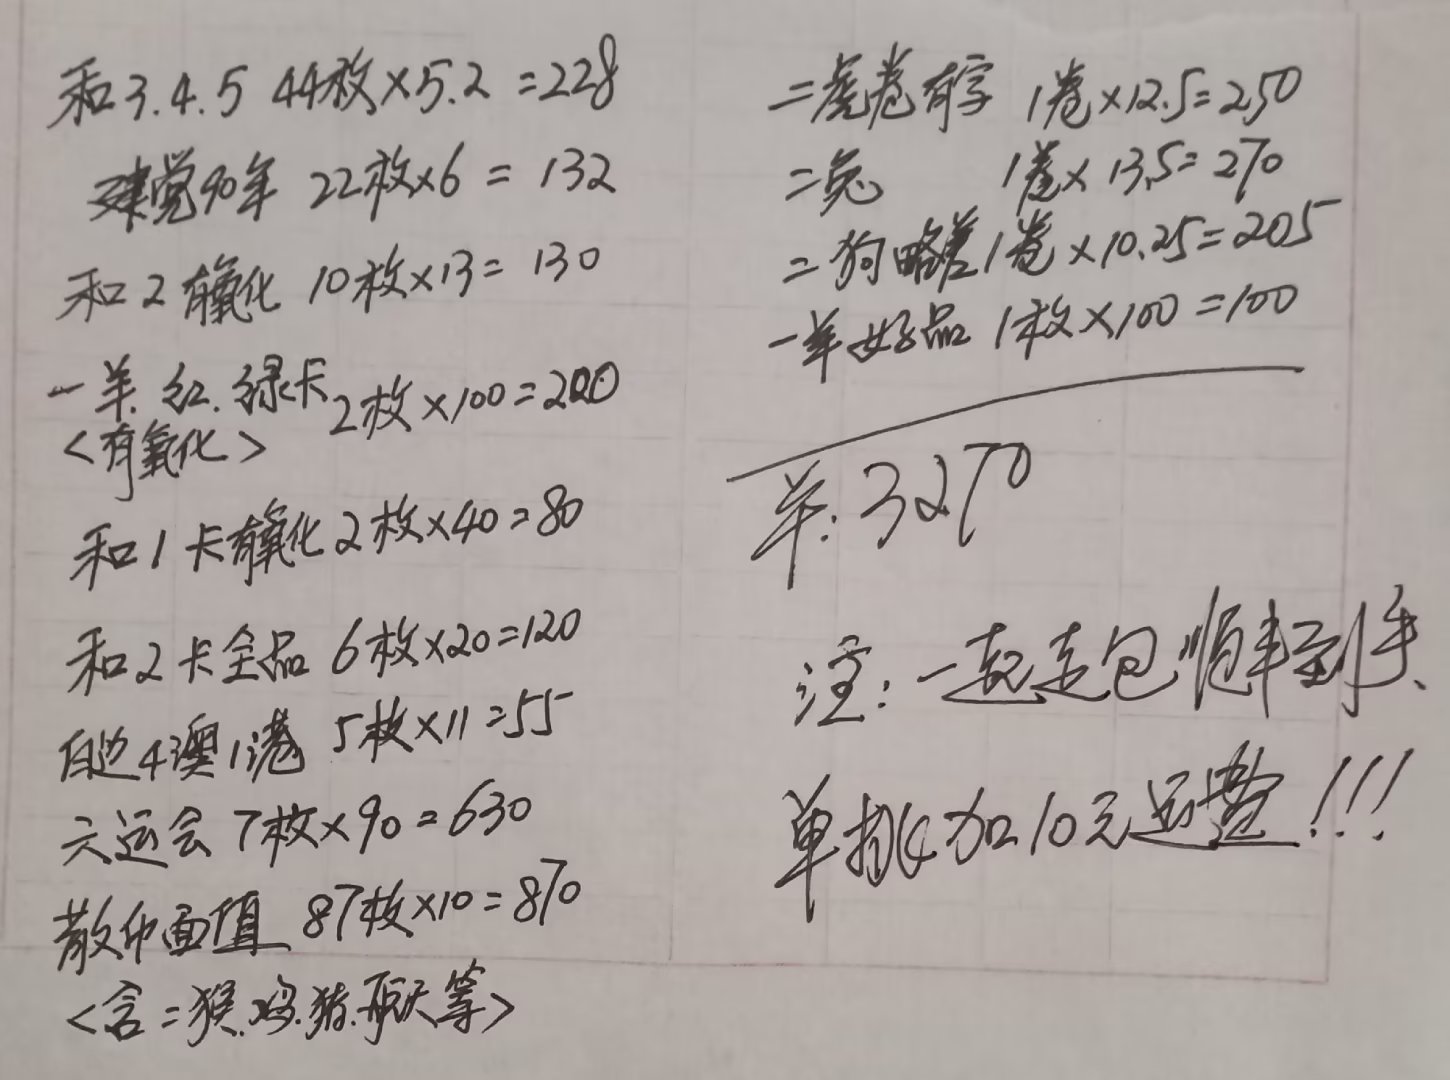 和3.4.5 44枚×5.2=228
建党90年 22枚×6=132
和2有氧化 10枚×13=130
一羊.红.绿卡 2枚×100=200
<有氧化>
和1卡有氧化 2枚×40=80
和2卡全品 6枚×20=120
白边4澳1港 5枚×11=55
六运会 7枚×90=630
散币面值 87枚×10=870
<含二猴.鸡.猪.航天等>
二虎卷有字 1卷×12.5=250
二兔 1卷×13.5=270
二狗略差1卷×10.25=205
一羊好品 1枚×100=100
羊:3270
注:一起走包顺丰到手、
单挑加10元运费!!!